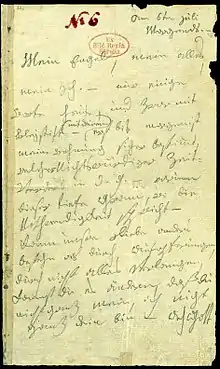 No 6
am 6ten juli
Morgends. –
EX
BIBL. REGIA
Berolin.
Mein Engel, mein alles
mein Ich. – nur einige
Worte heute, und zwar mit
Bleystift (mit deinem) erst bis morgen ist
meine wohnung sicher bestimmt,
welcher Nichtswürdiger Zeit-
in d.g. – warum
dieser tiefe Gram, wo die
Nothwendigkeit spricht –
Kann unsre Liebe anders
bestehn als durch Aufopferungen,
durch nicht alles verlangen,
kannst du es ändern, daß du
nicht ganz mein, ich nicht
ganz dein bin – Ach Gott